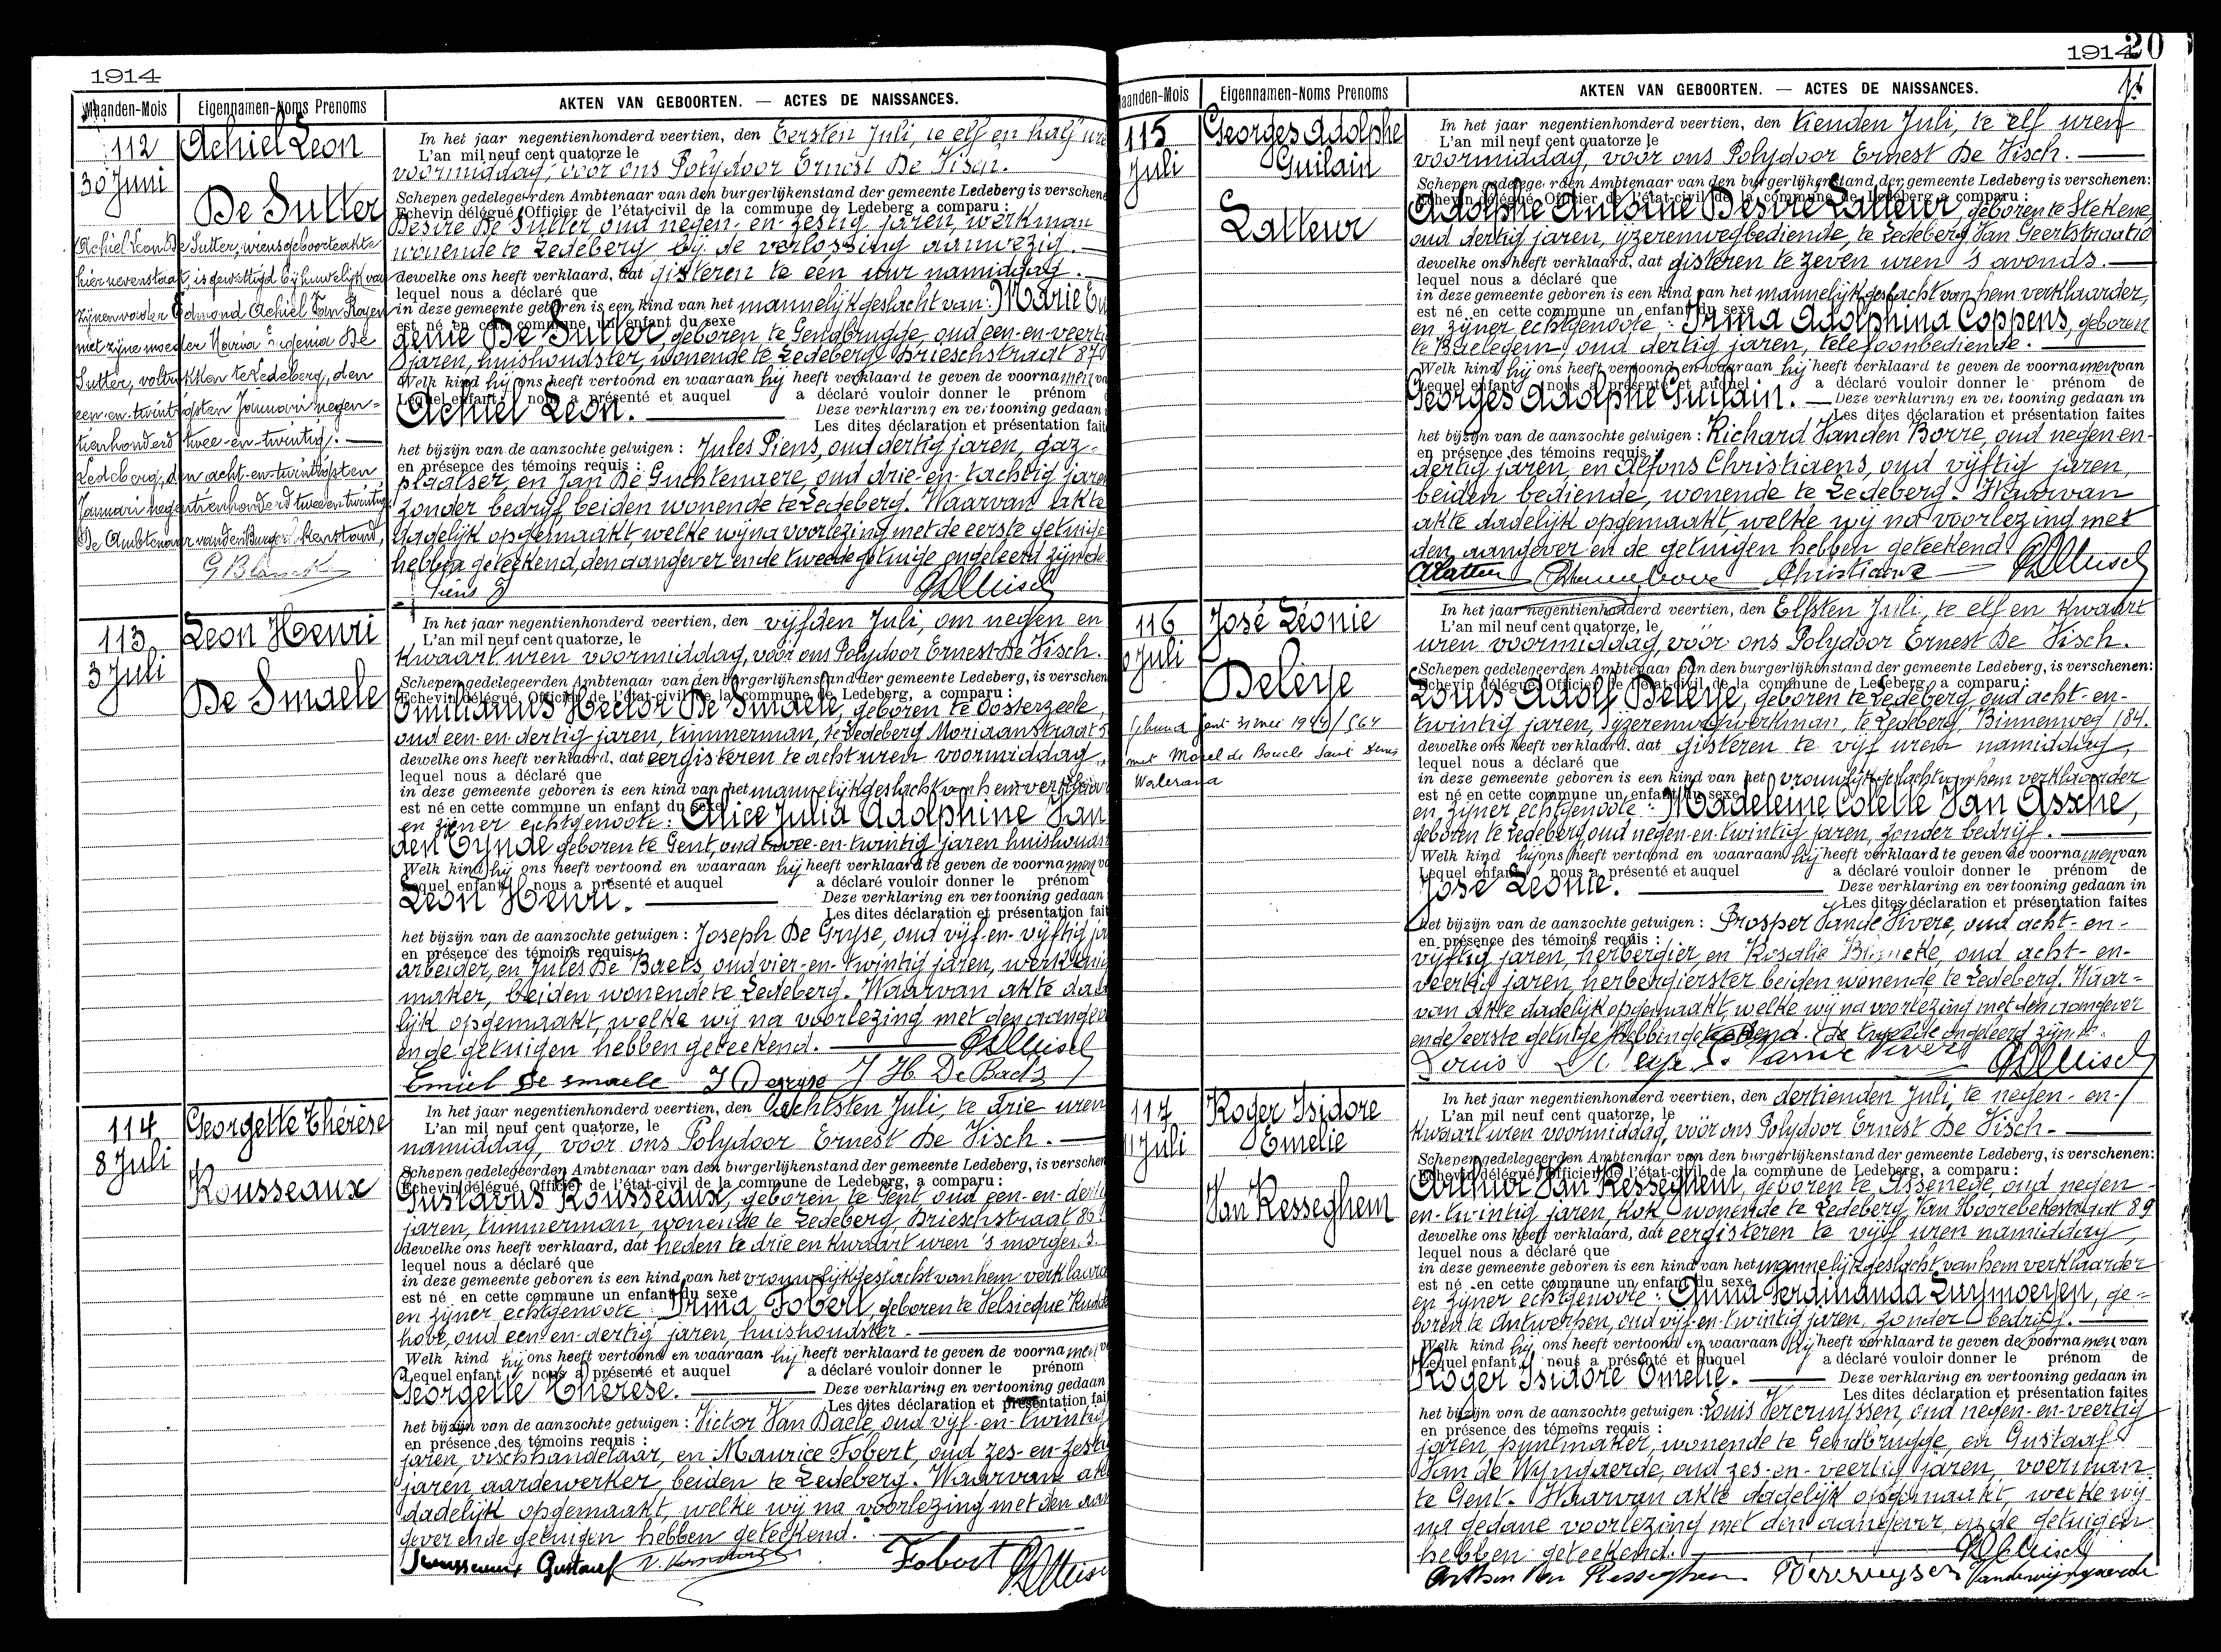 1914
Maanden-Mois
Eigennamen-Noms Prenoms
AKTEN VAN GEBOORTEN. — ACTES DE NAISSANCES.
112
30 Juni
Achiel Leon
De Sutter
Achiel Leon De Sutter, wiens geboorteakte
hiernevenstaat, is gewettigd bij huwelijk van
zijnen vader Edmond Achiel Van Royen
met zijne moeder Maria Eugenia De
Sutter, voltrokken te Ledeberg, den
een-en-twintigsten Januari negen-
tienhonderd twee-en-twintig. —
Ledeberg, den acht-en-twintigsten
Januari negentienhonderd twee en twintig
De Ambtenaar van den Burgerlijkenstand,
In het jaar negentienhonderd veertien, den Eersten Juli, te elf en half ure
L'an mil neuf cent quatorze le
voormiddag, voor ons Polydoor Ernest De Visch.
Schepen gedelegeerden Ambtenaar van den burgerlijkenstand der gemeente Ledeberg is verschene
Echevin délégué, Officier de l'état-civil de la commune de Ledeberg a comparu :
Desiré De Sutter oud negen-en-zestig jaren, werkman
wonende te Ledeberg bij de verlossing aanwezig. —
dewelke ons heeft verklaard, dat gisteren te een uur namiddag. —
lequel nous a déclaré que
in deze gemeente geboren is een kind van het mannelijk geslacht van: Marie Eu
est né en cette commune un enfant du sexe
genie De Sutter geboren te Gendbrugge, oud een-en-veertig
jaren, huishoudster, wonende te Ledeberg Drieschstraat 87
Welk kind hij ons heeft vertoond en waaraan hij heeft verklaard te geven de voornamen va
Lequel enfant nous a présenté et auquel a déclaré vouloir donner le prénom
Achiel Leon. — Deze verklaring en vertooning gedaan
Les dites déclaration et présentation fait
het bijzijn van de aanzochte getuigen : Jules Piens, oud dertig jaren, gaz-
en présence des témoins requis :
plaatser, en Jan De Guchtenaere, oud drie-en-tachtig jaren
zonder bedrijf, beiden wonende te Ledeberg. Waarvan akte
dadelijk opgemaakt, welke wij na voorlezing met de eerste getuige
hebben geteekend, den aangever en de tweede getuige ongeleerd zijnde.
Piens J
113
3 Juli
Leon Henri
De Smaele
In het jaar negentienhonderd veertien, den vijfden Juli, om negen en
L'an mil neuf cent quatorze, le
kwaart uren voormiddag, voor ons Polydoor Ernest De Visch.
Schepen gedelegeerden Ambtenaar van den burgerlijkenstand der gemeente Ledeberg, is verschen
Echevin délégué, Officier de l'état-civil de la commune de Ledeberg, a comparu :
Emilianus Hector De Smaele, geboren te Oosterzeele,
oud een-en-dertig jaren, timmerman, te Ledeberg Moriaanstraat 5
dewelke ons heeft verklaard, dat eergisteren te acht uren voormiddag,
lequel nous a déclaré que
in deze gemeente geboren is een kind van het mannelijk geslacht van hem verklaarder
est né en cette commune un enfant du sexe
en zijner echtgenoote : Alice Julia Adolphine Van
den Eynde geboren te Gent, oud twee-en-twintig jaren huishoudst
Welk kind hij ons heeft vertoond en waaraan hij heeft verklaard te geven de voornamen va
Lequel enfant nous a présenté et auquel a déclaré vouloir donner le prénom
Leon Henri. — Deze verklaring en vertooning gedaan
Les dites déclaration et présentation fait
het bijzijn van de aanzochte getuigen : Joseph De Gryse, oud vijf-en-vijftig ja
en présence des témoins requis,
arbeider, en Jules De Baets, oud vier-en-twintig jaren, werktuig
maker, beiden wonende te Ledeberg. Waarvan akte dade
lijk opgemaakt, welke wij na voorlezing met den aangev
en de getuigen hebben geteekend. —
Emiel De smaele J Degryse J H De Baets
114
8 Juli
Georgette Thérèse
Rousseaux
In het jaar negentienhonderd veertien, den Achtsten Juli, te drie uren
L'an mil neuf cent quatorze, le
namiddag, voor ons Polydoor Ernest De Visch. —
Schepen gedelegeerden Ambtenaar van den burgerlijkenstand der gemeente Ledeberg, is verschen
Echevin délégué, Officier de l'état-civil de la commune de Ledeberg, a comparu :
Gustavus Rousseaux, geboren te Gent oud een-en-dertig
jaren, timmerman, wonende te Ledeberg Drieschstraat 86
dewelke ons heeft verklaard, dat heden te drie en kwaart uren 's morgens.
lequel nous a déclaré que
in deze gemeente geboren is een kind van het vrouwelijk geslacht van hem verklaard
est né en cette commune un enfant du sexe
en zijner echtgenoote : Irma Fobert geboren te Velsicque Rudde
hove, oud een-en-dertig jaren, huishoudster. —
Welk kind hij ons heeft vertoond en waaraan hij heeft verklaard te geven de voornamen va
Lequel enfant nous a présenté et auquel a déclaré vouloir donner le prénom
Georgette Thérèse. — Deze verklaring en vertooning gedaan
Les dites déclaration et présentation fai
het bijzijn van de aanzochte getuigen : Victor Van Daele, oud vijf-en-twintig
en présence des témoins requis :
jaren, vischhandelaar, en Maurice Fobert, oud zes-en-zestig
jaren, aardewerker, beiden te Ledeberg. Waarvan akt
dadelijk opgemaakt, welke wij na voorlezing met den aan
gever en de getuigen hebben geteekend. —
Rousseaux Gustaaf Fobert
1914
20
Maanden-Mois
Eigennamen-Noms Prenoms
AKTEN VAN GEBOORTEN. — ACTES DE NAISSANCES.
115
Juli
Georges Adolphe
Guilain
Latteur
In het jaar negentienhonderd veertien, den tienden Juli, te elf uren
L'an mil neuf cent quatorze le
voormiddag, voor ons Polydoor Ernest De Visch. —
Schepen gedelegeerden Ambtenaar van den burgerlijkenstand der gemeente Ledeberg is verschenen:
Echevin délégué, Officier de l'état-civil de la commune de Ledeberg a comparu :
Adolphe Antoine Désiré Latteur, geboren te Stekene,
oud dertig jaren, yzerenwegbediende, te Ledeberg Van Geertstraat 10
dewelke ons heeft verklaard, dat gisteren te zeven uren 's avonds. —
lequel nous a déclaré que
in deze gemeente geboren is een kind van het mannelijk geslacht van hem verklaarder,
est né en cette commune un enfant du sexe
en zijner echtgenoote : Irma Adolphina Coppens, geboren
te Baelegem, oud dertig jaren, telefoonbediende. —
Welk kind hij ons heeft vertoond en waaraan hij heeft verklaard te geven de voornamen van
Lequel enfant nous a présenté et auquel a déclaré vouloir donner le prénom de
Georges Adolphe Guilain. — Deze verklaring en vertooning gedaan in
Les dites déclaration et présentation faites
het bijzijn van de aanzochte getuigen : Richard Vanden Borre, oud negen en-
en présence des témoins requis :
dertig jaren, en Alfons Christiaens, oud vijftig jaren,
beiden bediende, wonende te Ledeberg. Waarvan
akte dadelijk opgemaakt, welke wij na voorlezing met
den aangever en de getuigen hebben geteekend.
ALatteur Christiaens
116
Juli
José Léonie
Deleye
Gent 31 mei 1944/564
met Morel de Boucle Saint Denis
Walerand
In het jaar negentienhonderd veertien, den Elfsten Juli, te elf en kwaart
L'an mil neuf cent quatorze, le
uren voormiddag, voor ons Polydoor Ernest De Visch.
Schepen gedelegeerden Ambtenaar van den burgerlijkenstand der gemeente Ledeberg, is verschenen:
Echevin délégué, Officier de l'état-civil de la commune de Ledeberg, a comparu :
Louis Adolf Deleye, geboren te Ledeberg, oud acht-en-
twintig jaren, yzerenwegwerkman, te Ledeberg, Binnenweg 184.
dewelke ons heeft verklaard, dat gisteren te vijf uren namiddag,
lequel nous a déclaré que
in deze gemeente geboren is een kind van het vrouwelijk geslacht van hem verklaarder
est né en cette commune un enfant du sexe
en zijner echtgenoote : Madeleine Colette Van Assche,
geboren te Ledeberg, oud negen-en-twintig jaren, zonder bedrijf. —
Welk kind hij ons heeft vertoond en waaraan hij heeft verklaard te geven de voornamen van
Lequel enfant nous a présenté et auquel a déclaré vouloir donner le prénom de
José Léonie. — Deze verklaring en vertooning gedaan in
Les dites déclaration et présentation faites
het bijzijn van de aanzochte getuigen : Prosper Vande Vivere, oud acht-en-
en présence des témoins requis :
vijftig jaren, herbergier en Rosalie, oud acht-en-
veertig jaren, herbergierster beiden wonende te Ledeberg. Waar-
van akte dadelijk opgemaakt, welke wij na voorlezing met den aangever
en de eerste getuige hebben geteekend. de tweede ongeleerd zijnde.
Louis
117
11 Juli
Roger Isidore
Emelie
Van Resseghem
In het jaar negentienhonderd veertien, den dertienden Juli, te negen-en-
L'an mil neuf cent quatorze, le
kwaart uren voormiddag, voor ons Polydoor Ernest De Visch. —
Schepen gedelegeerden Ambtenaar van den burgerlijkenstand der gemeente Ledeberg, is verschenen:
Echevin délégué, Officier de l'état-civil de la commune de Ledeberg, a comparu :
Arthur Van Resseghem, geboren te Assenede, oud negen
en-twintig jaren, kok wonende te Ledeberg, Van Hoorebekestraat 89
dewelke ons heeft verklaard, dat eergisteren te vijf uren namiddag,
lequel nous a déclaré que
in deze gemeente geboren is een kind van het mannelijk geslacht van hem verklaarder
est né en cette commune un enfant du sexe
en zijner echtgenoote : Anna Ferdinanda Luymoeyen, ge-
boren te Antwerpen, oud vijf-en-twintig jaren, zonder bedrijf. —
Welk kind hij ons heeft vertoond en waaraan hij heeft verklaard te geven de voornamen van
Lequel enfant nous a présenté et auquel a déclaré vouloir donner le prénom de
Roger Isidore Emelie. — Deze verklaring en vertooning gedaan in
Les dites déclaration et présentation faites
het bijzijn van de aanzochte getuigen : Louis Vercruyssen, oud negen-en-veertig
en présence des témoins requis :
jaren, puntmaker, wonende te Gendbrugge, en Gustaaf
Van de Wyngaerde, oud zes-en-veertig jaren, voerman
te Gent. Waarvan akte dadelijk opgemaakt, welke wij
na gedane voorlezing met den aangever, en de getuigen
hebben geteekend. —
Arthur Van Resseghem Vercruyssen Vandewijngaerde